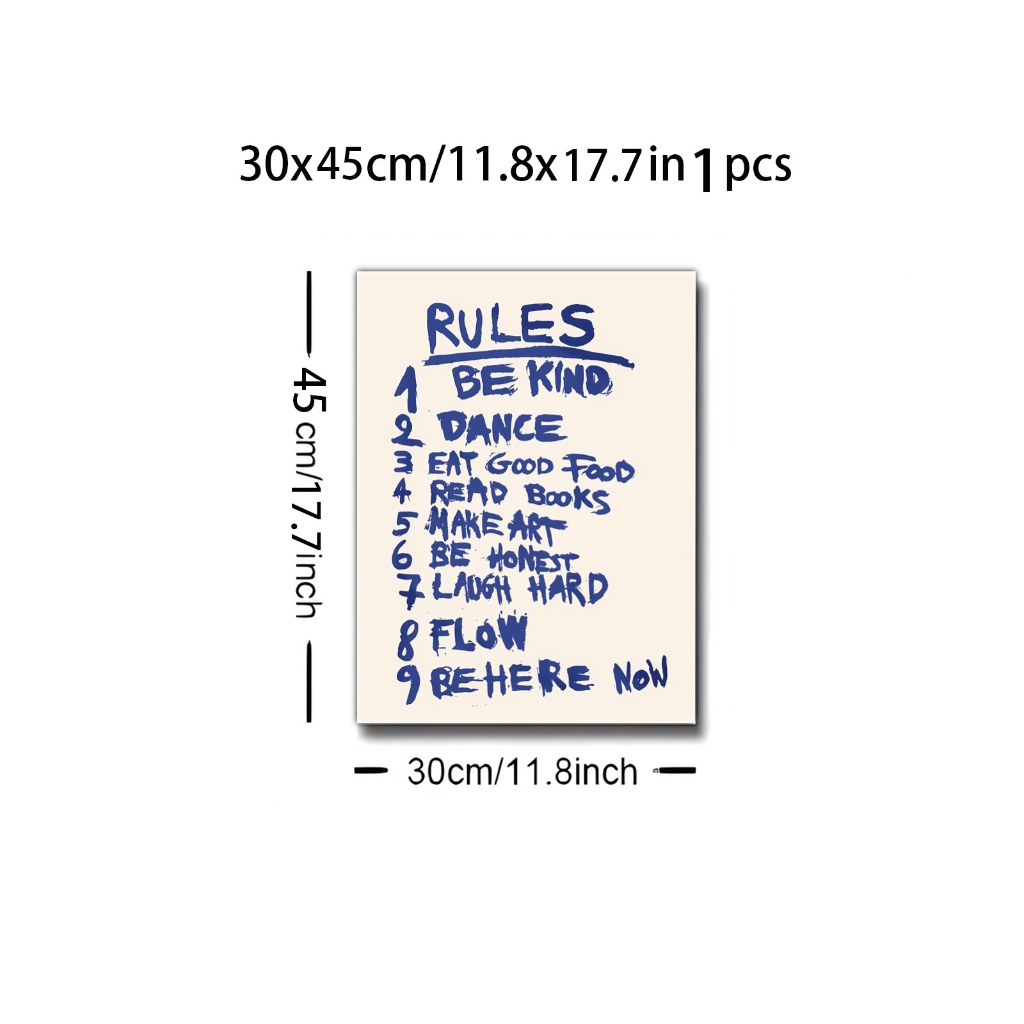 30x45cm/11.8x17.7in 1 pcs
45 cm/17.7inch
RULES
1 BE KIND
2 DANCE
3 EAT GOOD FOOD
4 READ BOOKS
5 MAKE ART
6 BE HONEST
7 LAUGH HARD
8 FLOW
9 BE HERE NOW
30cm/11.8inch